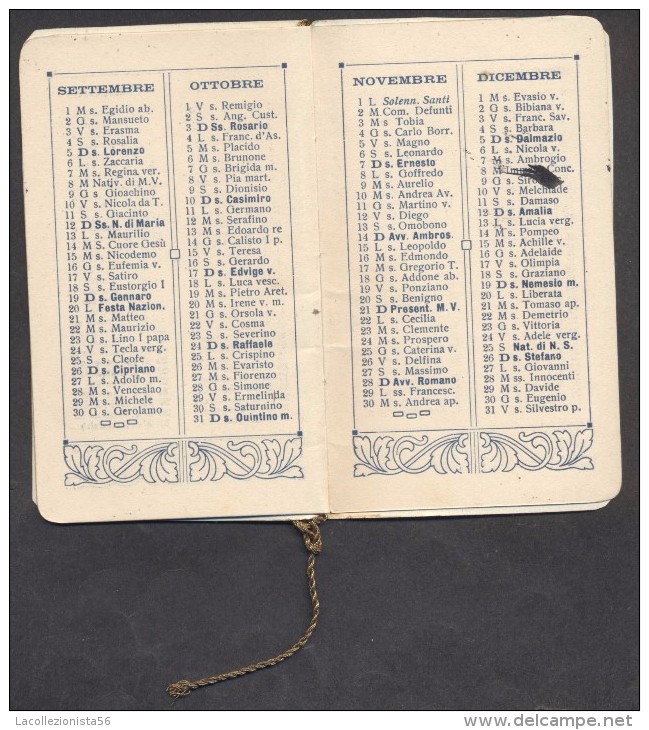 SETTEMBRE
1 M s. Egidio ab.
2 G s. Mansueto
3 V s. Erasma
4 S s. Rosalia
5 D s. Lorenzo
6 L s. Zaccaria
7 M s. Regina ver.
8 M Nativ. di M.V.
9 G s. Gioachino
10 V s. Nicola da T.
11 S s. Giacinto
12 D Ss. N. di Maria
13 L s. Maurilio
14 M S. Cuore Gesù
15 M s. Nicodemo
16 G s. Eufemia v.
17 V s. Satiro
18 S s. Eustorgio I
19 D s. Gennaro
20 L Festa Nazion.
21 M s. Matteo
22 M s. Maurizio
23 G s. Lino I papa
24 V s. Tecla verg.
25 S s. Cleofe
26 D s. Cipriano
27 L s. Adolfo m.
28 M s. Venceslao
29 M s. Michele
30 G s. Gerolamo
OTTOBRE
1 V s. Remigio
2 S s. Ang. Cust.
3 D Ss. Rosario
4 L s. Franc. d'As.
5 M s. Placido
6 M s. Brunone
7 G s. Brigida m.
8 V s. Pia mart.
9 S s. Dionisio
10 D s. Casimiro
11 L s. Germano
12 M s. Serafino
13 M s. Edoardo re
14 G s. Calisto I p.
15 V s. Teresa
16 S s. Gerardo
17 D s. Edvige v.
18 L s. Luca vesc.
19 M s. Pietro Aret.
20 M s. Irene v. m.
21 G s. Orsola v.
22 V s. Cosma
23 S s. Severino
24 D s. Raffaele
25 L s. Crispino
26 M s. Evaristo
27 M s. Fiorenzo
28 G s. Simone
29 V s. Ermelinda
30 S s. Saturnino
31 D s. Quintino m.
NOVEMBRE
1 L Solenn. Santi
2 M. Com. Defunti
3 M s. Tobia
4 G s. Carlo Borr.
5 V s. Magno
6 S s. Leonardo
7 D s. Ernesto
8 L s. Goffredo
9 M s. Aurelio
10 M s. Andrea Av.
11 G s. Martino v.
12 V s. Diego
13 S s. Omobono
14 D Avv. Ambros.
15 L s. Leopoldo
16 M s. Edmondo
17 M s. Gregorio T.
18 G s. Addone ab.
19 V s. Ponziano
20 S s. Benigno
21 D Present. M. V.
22 L s. Cecilia
23 M s. Clemente
24 M s. Prospero
25 G s. Caterina v.
26 V s. Delfina
27 S s. Massimo
28 D Avv. Romano
29 L ss. Francesc.
30 M s. Andrea ap.
DICEMBRE
1 M s. Evasio v.
2 G s. Bibiana v.
3 V s. Franc. Sav.
4 S s. Barbara
5 D s. Dalmazio
6 L s. Nicola v.
7 M s. Ambrogio
8 M Conc.
9 G s.
10 V s. Melchiade
11 S s. Damaso
12 D s. Amalia
13 L s. Lucia verg.
14 M s. Pompeo
15 M s. Achille v.
16 G s. Adelaide
17 V s. Olimpia
18 S s. Graziano
19 D s. Nemesio m.
20 L s. Liberata
21 M s. Tomaso ap.
22 M s. Demetrio
23 G s. Vittoria
24 V s. Adele verg.
25 S Nat. di N. S.
26 D s. Stefano
27 L s. Giovanni
28 M ss. Innocenti
29 M s. Davide
30 G s. Eugenio
31 V s. Silvestro p.
Lacollezionista56
www.delcampe.net